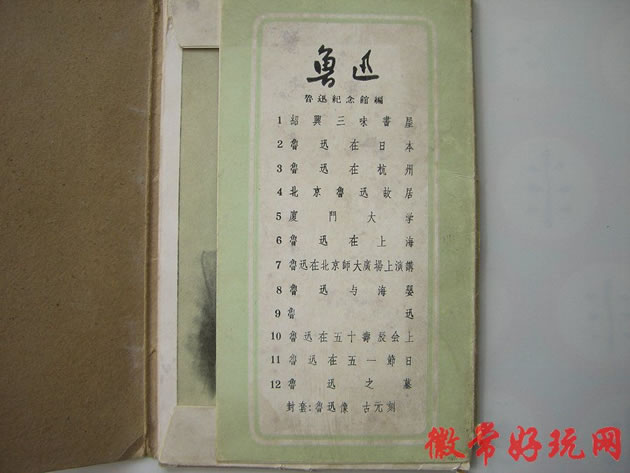 魯迅
魯迅紀念館編
1 紹興三味書屋
2 魯迅在日本
3 魯迅在杭州
4 北京魯迅故居
5 廈門大学
6 魯迅在上海
7 魯迅在北京師大廣場上演講
8 魯迅与海嬰
9 魯迅
10 魯迅在五十壽辰会上
11 魯迅在五一節日
12 魯迅之墓
封套:魯迅像 古元刻
徽常好玩网